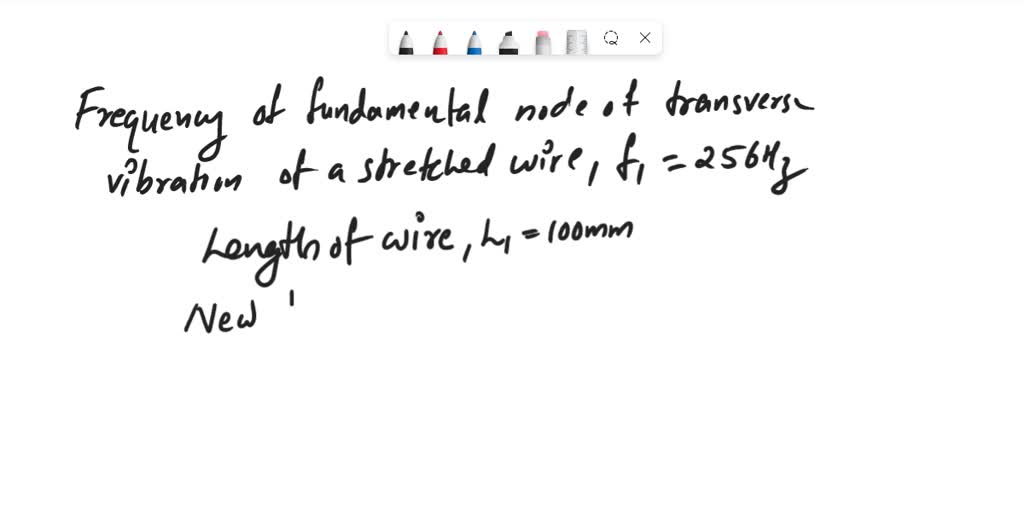 Frequency of fundamental node of transverse
vibration of a stretched wire, f₁ = 256Hz
Length of wire, L₁ = 100mm
New